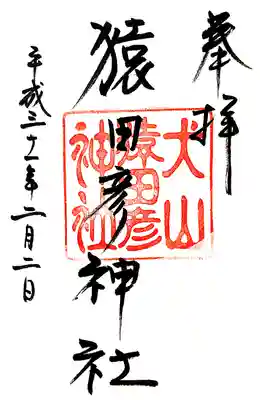 奉拝
犬山
猿田彦
神社
猿田彦神社
平成三十一年二月二日